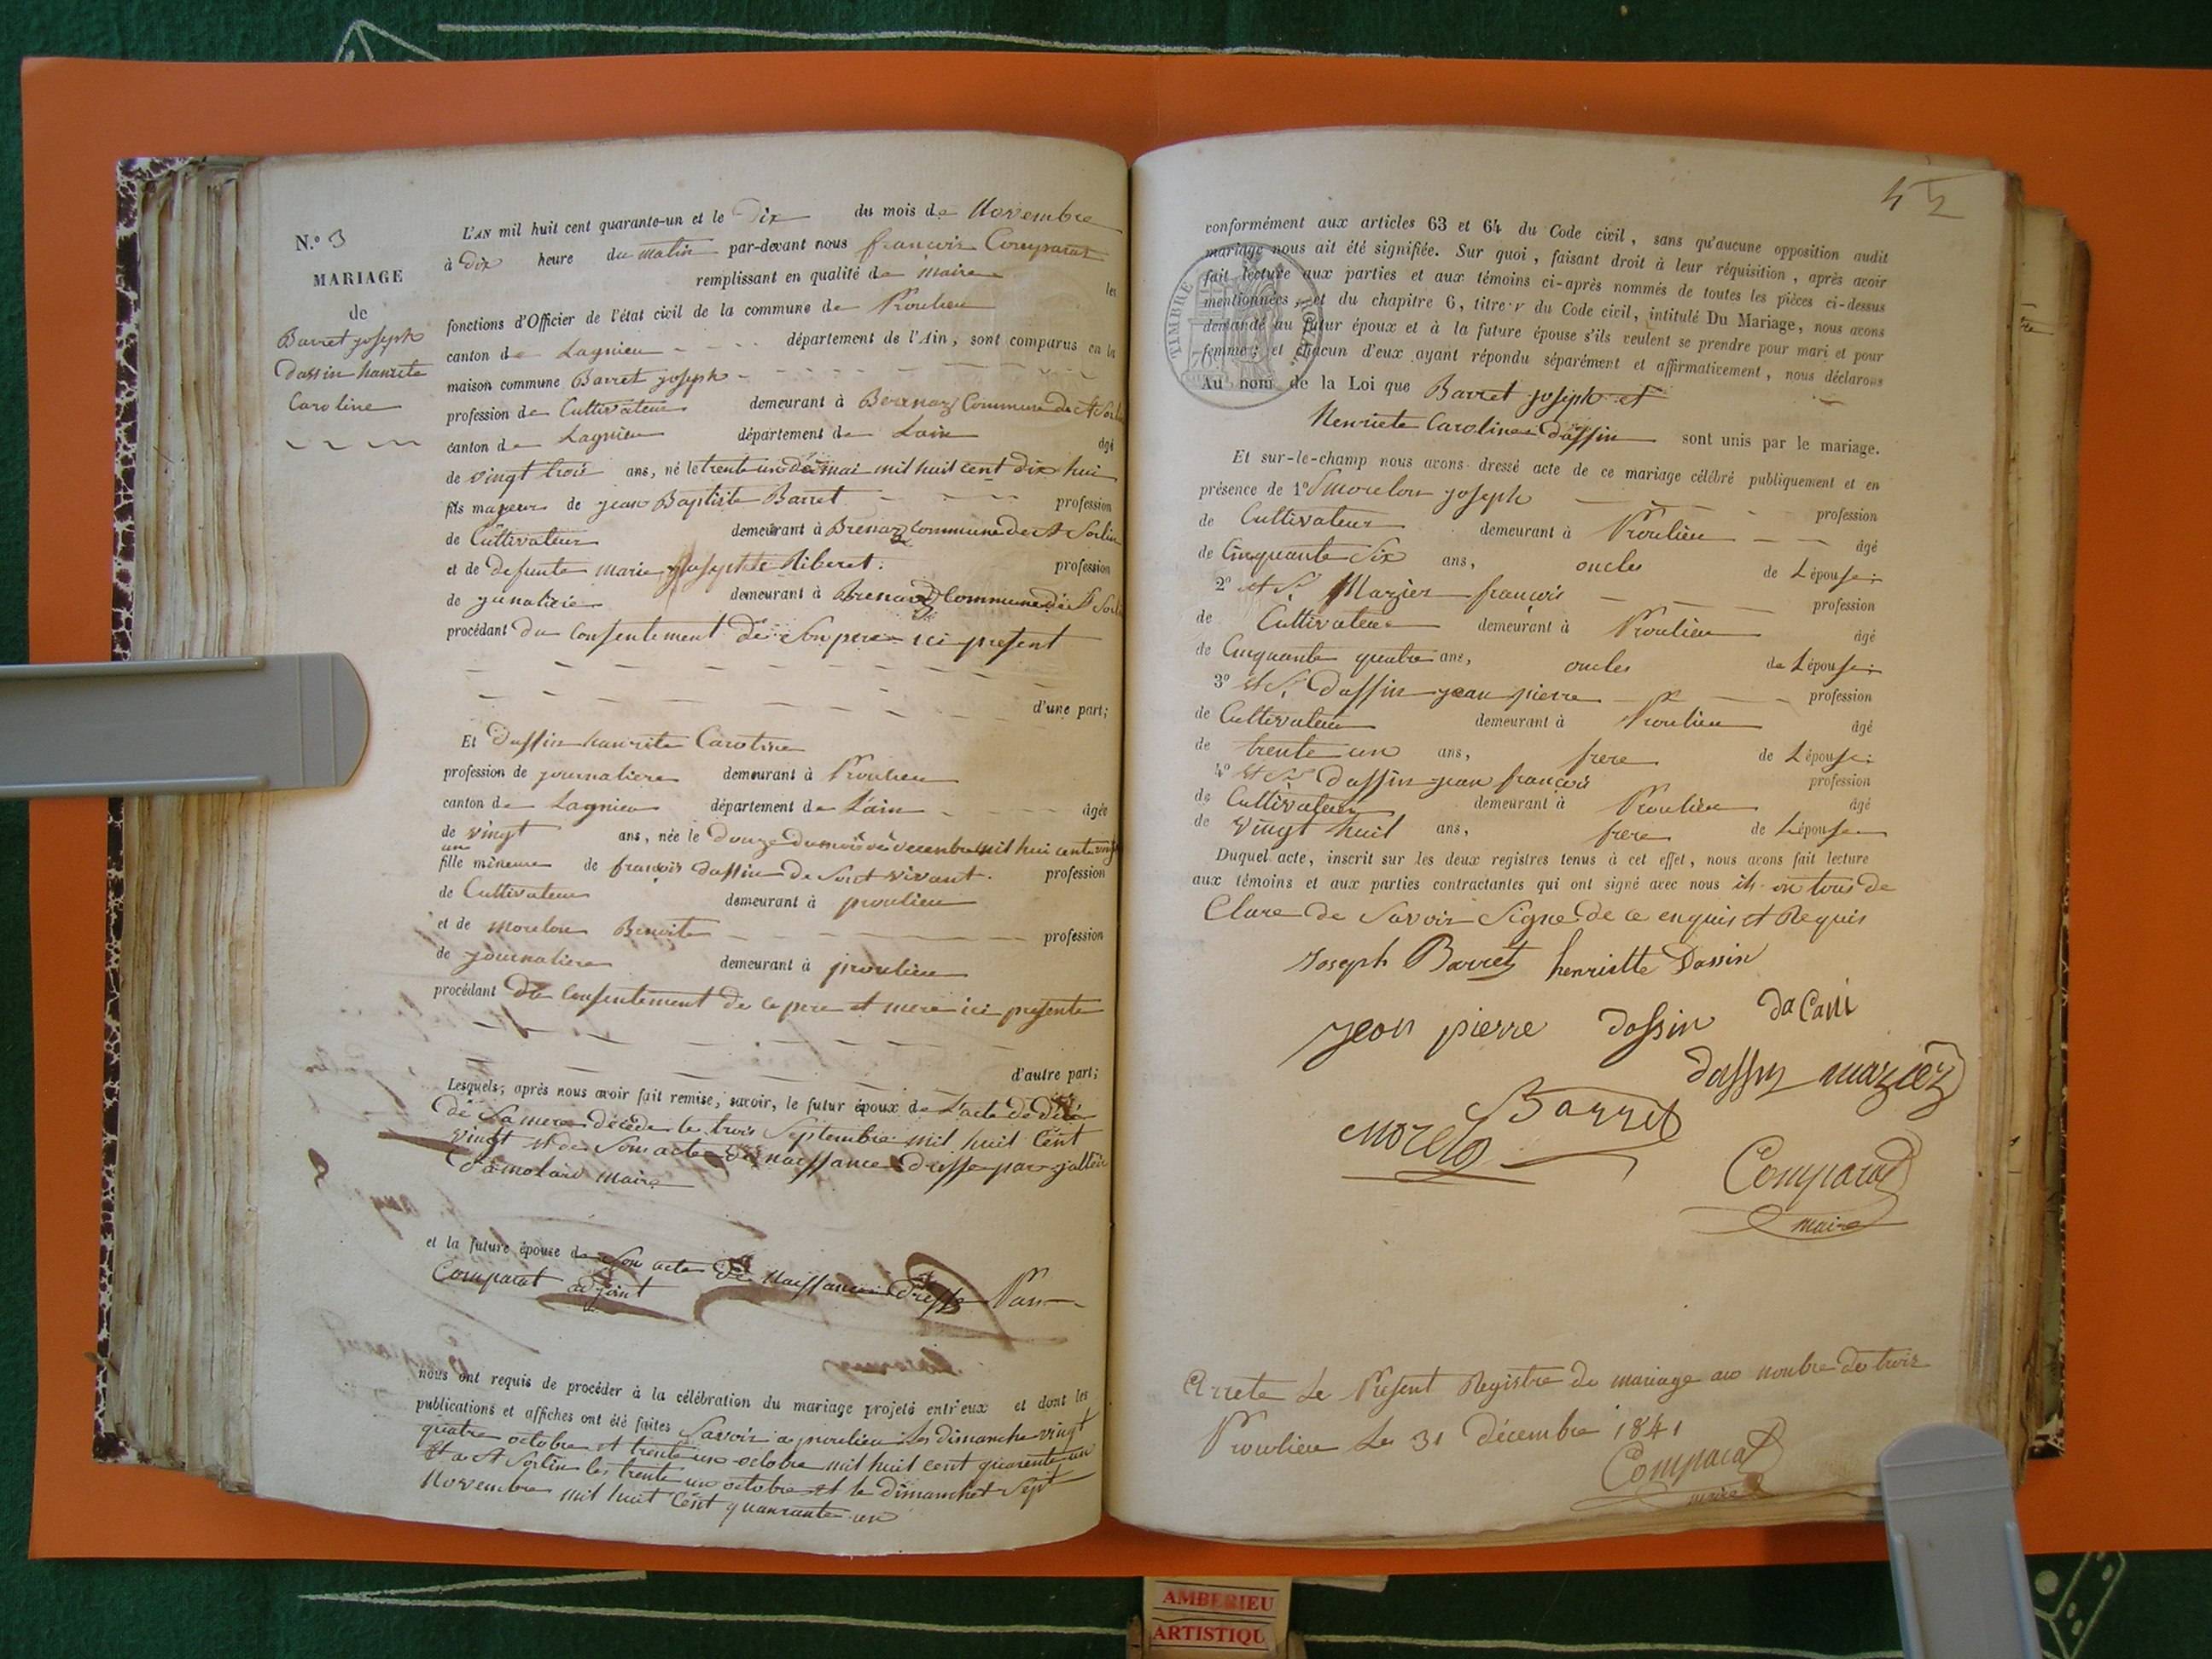 N.º 3
MARIAGE
de
Barret joseph
Dassin hanrite
Caroline
L'AN mil huit cent quarante-un et le Dix du mois de Novembre
à Dix heure du matin par-devant nous francois Comparat
remplissant en qualité de maire les
fonctions d'Officier de l'état civil de la commune de Proulieu
canton de Lagnieu département de l'Ain, sont comparus en la
maison commune Barret joseph
profession de Cultivateur demeurant à Brenaz Commune de St Sorlin
canton de Lagnieu département de Lain âgé
de vingt trois ans, né le trente un de mai mil huit cent dix hui
fils majeur de jean Baptiste Barret profession
de Cultivateur demeurant à Brenaz Commune de St Sorlin
et de defunte marie josephte Riberet profession
de demeurant à Brenaz Commune de St Sorlin
procédant du Consentement de Son pere ici present
d'une part;
Et dassin hanrite Caroline
profession de journaliere demeurant à Proulieu
canton de Lagnieu département de Lain âgée
de vingt un ans, née le Douze du mois de decembre mil hui cent vingt
fille mineure de francois dassin de Son vivant profession
de Cultivateur demeurant à proulieu
et de morelon Benoite profession
de journaliere demeurant à proulieu
procédant du Consentement de ce pere et mere ici presente
d'autre part;
Lesquels, après nous avoir fait remise, savoir, le futur époux de L'acte de décé
de Sa mere décéde le trois Septembre mil huit Cent
vingt et de Son acte de naissance dresse par
molard maire
et la future épouse de Son acte de Naissance Dresse Par
Comparat adjoint
nous ont requis de procéder à la célébration du mariage projeté entr'eux et dont les
publications et affiches ont été faites Savoir a proulieu les dimanche vingt
quatre octobre et trente un octobre mil huit cent quarente un
Et a St Sorlin les trente un octobre et le dimanche Sept
Novembre mil huit Cent quanrante un
conformément aux articles 63 et 64 du Code civil, sans qu'aucune opposition audit
mariage nous ait été signifiée. Sur quoi, faisant droit à leur réquisition, après avoir
fait lecture aux parties et aux témoins ci-après nommés de toutes les pièces ci-dessus
mentionnées, et du chapitre 6, titre v du Code civil, intitulé Du Mariage, nous avons
demandé au futur époux et à la future épouse s'ils veulent se prendre pour mari et pour
femme; et chacun d'eux ayant répondu séparément et affirmativement, nous déclarons
Au nom de la Loi que Barret joseph et
Henriete Caroline dassin sont unis par le mariage.
Et sur-le-champ nous avons dressé acte de ce mariage célébré publiquement et en
présence de 1º S morelon joseph profession
de Cultivateur demeurant à Proulieu âgé
de Cinquante Six ans, oncles de Lépouse
2º et Sr Mazier françois profession
de Cultivateur demeurant à Proulieu âgé
de Cinquante quatre ans, oncles de Lépouse
3º et Sr dassin jean pierre profession
de Cultivateur demeurant à Proulieu âgé
de trente un ans, frere de Lépouse
4º et Sr dassin jean francois profession
de Cultivateur demeurant à Proulieu âgé
de vingt huit ans, frere de Lépouse
Duquel acte, inscrit sur les deux registres tenus à cet effet, nous avons fait lecture
aux témoins et aux parties contractantes qui ont signé avec nous ils on tous de
Clare de Savoir Signe de ce enquis et Requis
Joseph Barret henriette Dassin
jean pierre dassin
dassin mazier
Barret
Comparat
maire
Arrete Le Present Registre de mariage au nombre de trois
Proulieu Le 31 décembre 1841
Comparat
maire
TIMBRE ROYAL
AMBERIEU
ARTISTIQU